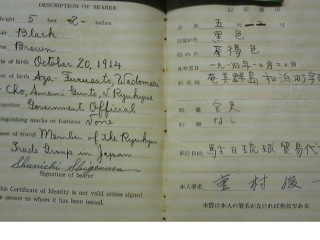 DESCRIPTION OF BEARER
Height 5 feet 2 inches
Black
Brown
of birth October 20, 1914
of birth Aza Furusato, Wadomari
Cho, Amami Gunto, N. Ryukyus
Government Official
Distinguishing marks or features None
of travel Member of the Ryukyu
Trade Group in Japan
Shunichi Shigemura
Signature of bearer
This Certificate of Identity is not valid unless signed
person to whom it has been issued.
五 二
黒色
茶褐色
一九一四年一〇月二〇日
奄美群島 和泊町字
官吏
なし
旅行目的 駐日琉球貿易代
本人署名 重村俊一
本證は本人の署名がなければ無効である